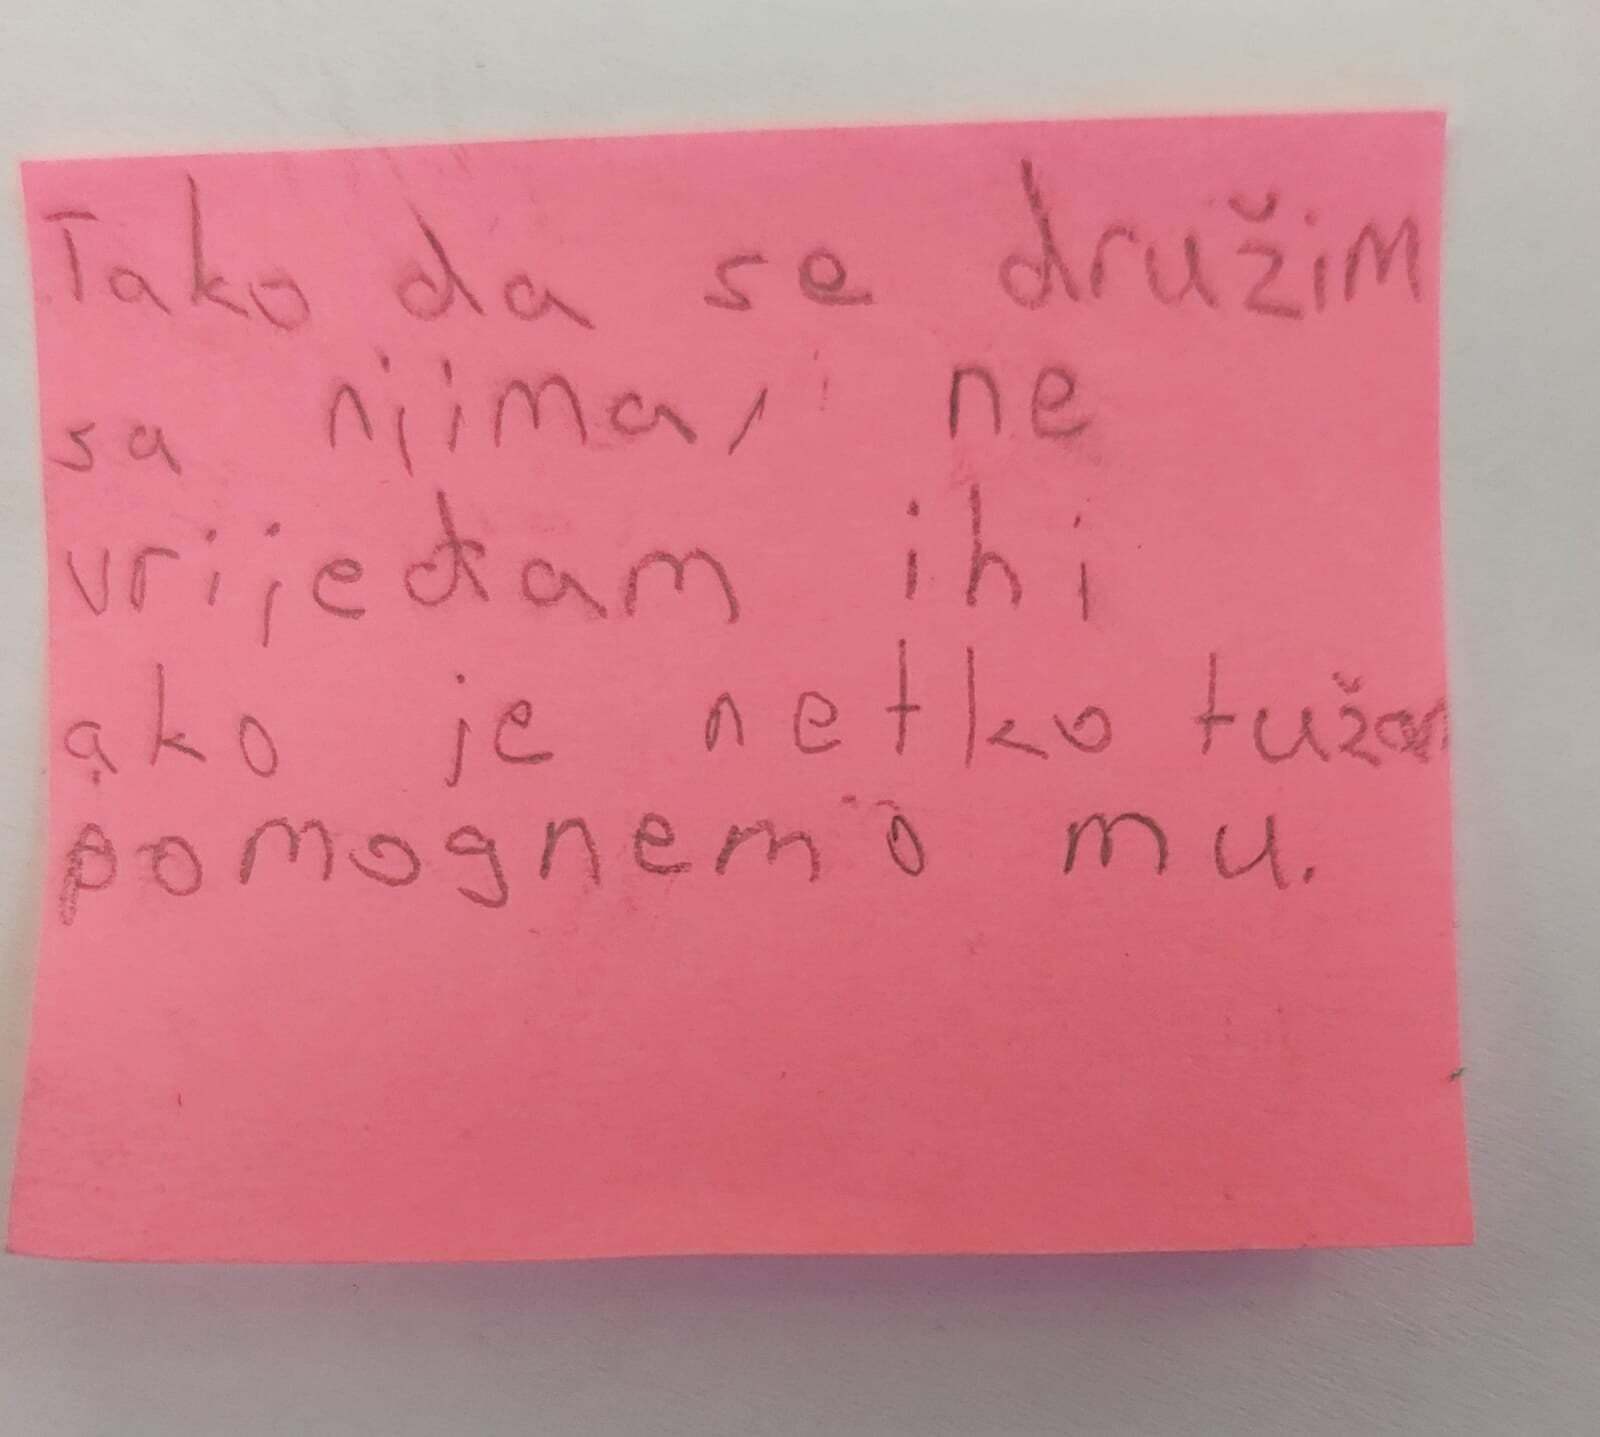 Tako da se družim
sa njima, ne
vrijeđam ih i
ako je netko tužan
pomognemo mu.